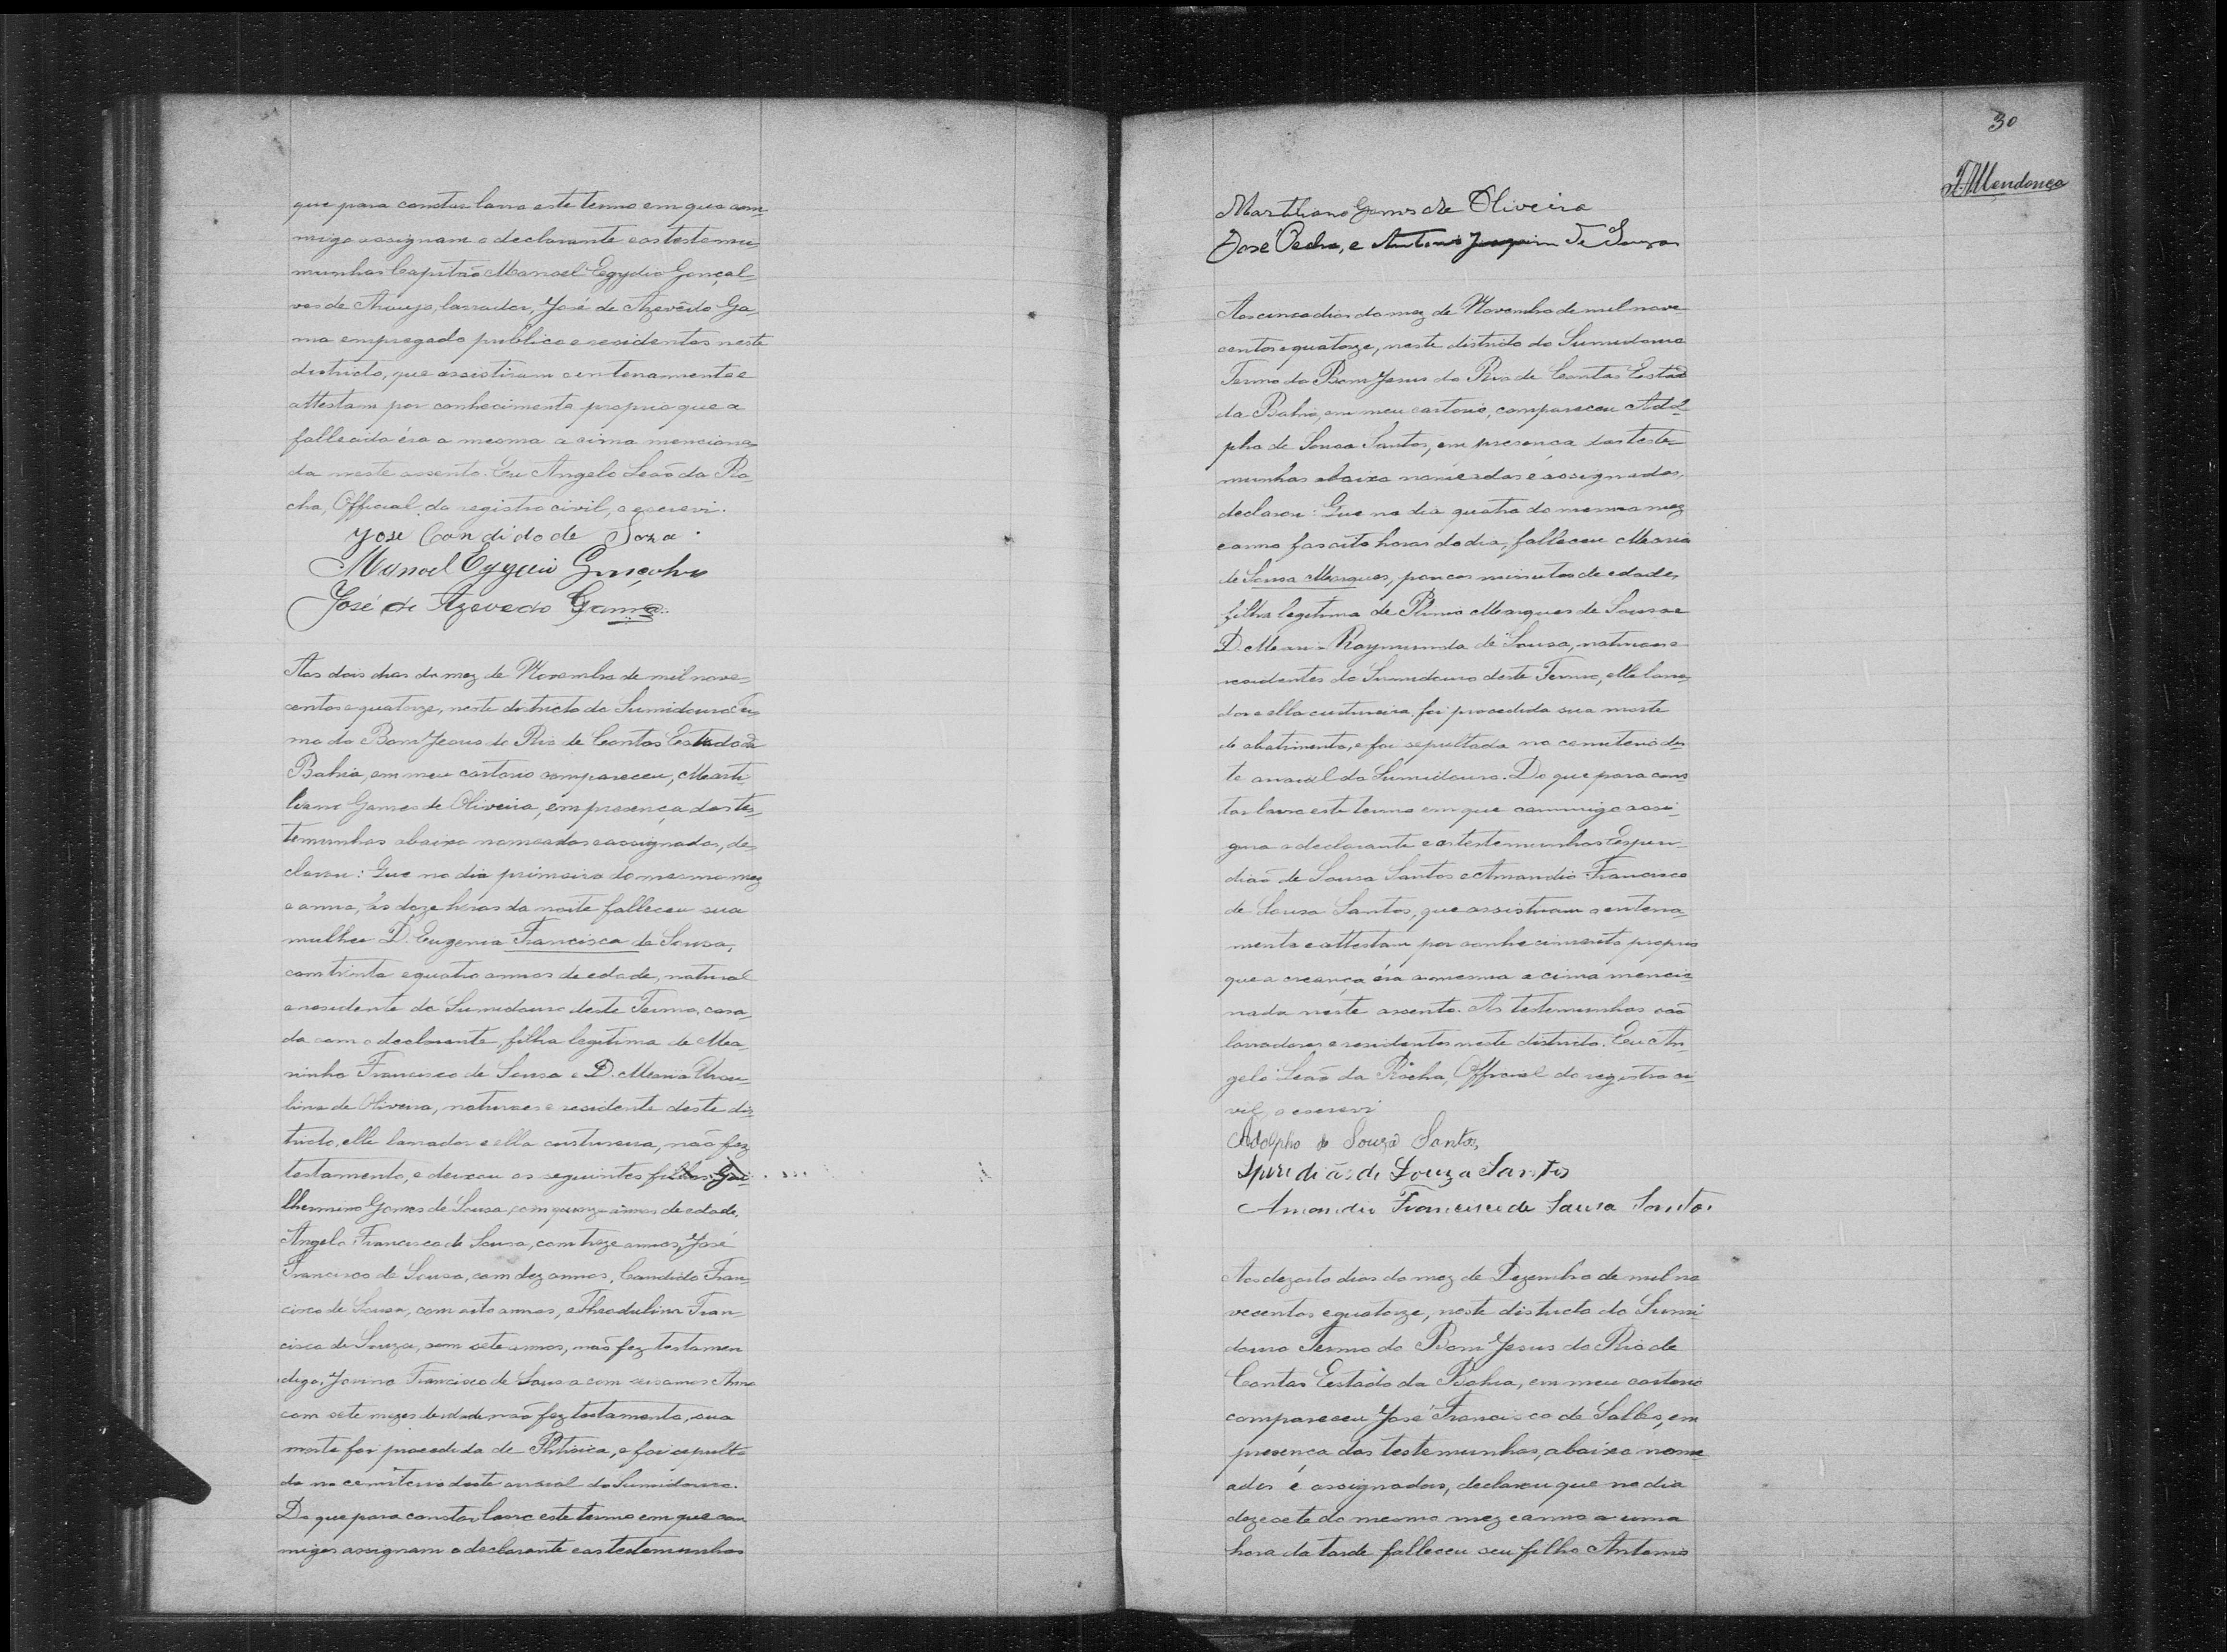 que para constar lavro este termo em que com-
migo assignam o declarante e as testemu-
munhas Capitão Manoel Egydio Gonçal-
ves de Araujo, lavrador, José de Azevêdo Ga-
ma empregado publico e residentes neste
districto, que assistiram o enterramento e
attestam por conhecimento proprio que a
fallecida éra a mesma a cima menciona-
da neste assento. Eu Angelo Leão da Ro-
cha, Official do registro civil, o escrevi.
José Candido de Soza
Manoel Egydio Gonçalves
José de Azevedo Gama
Aos dois dias do mez de Novembro de mil nove-
centos e quatorze, neste districto do Sumidouro Ter-
mo do Bom Jesus do Rio de Contas Estado da
Bahia, em meu cartorio compareceu, Marti-
liano Gomes de Oliveira, em presença das tes-
temunhas abaixo nomeadas e assignadas, de-
clarou: Que no dia primeiro do mesmo mez
e anno, às doze horas da noite falleceu sua
mulher D. Eugenia Francisca de Sousa,
com trinta e quatro annos de edade, natural
e residente do Sumidouro deste Termo, casa-
da com o declarante, filha legitima de Ma-
rinho Francisco de Sousa e D. Maria Ursu-
lina de Oliveira, naturaes e residente deste dis-
tricto, elle lavrador e ella custureira, não fez
testamento, e deixou os seguintes filhos: Gui-
lhermino Gomes de Sousa, com quinze annos de edade,
Angelo Francisco de Sousa, com treze annos, José
Francisco de Sousa, com dez annos, Candido Fran-
cisco de Sousa, com oito annos, e Theodulina Fran-
cisca de Souza, com sete annos, não fez testamen
digo, Jovino Francisco de Sousa com seis annos Anna
com sete mezes de edade não fez testamento, sua
morte foi procedida de Phtisica, e foi sepulta-
da no cemiterio deste arraial do Sumidouro.
Do que para constar lavro este termo em que com
migo assignam o declarante e as testemunhas
30
Mendonça
Martiliano Gomes de Oliveira
José Pedro, e Antonio Joaquim de Souza
Aos cinco dias do mez de Novembro de mil nove
centos e quatorze, neste districto do Sumidouro
Termo do Bom Jesus do Rio de Contas Estado
da Bahia, em meu cartorio, compareceu Adol-
pho de Sousa Santos, em presença das teste-
munhas abaixo nomeadas e assignadas,
declarou: Que no dia quatro do mesmo mez
e anno às oito horas do dia, falleceu Maria
de Sousa Marques, poucos minutos de edade,
filha legitima de Plinio Marques de Sousa e
D. Maria Raymunda de Sousa, naturaes e
residentes do Sumidouro deste Termo, elle lavra-
dor e ella custureira, foi procedida sua morte
de abatimento, e foi sepultada no cemiterio des-
te arraial do Sumidouro. Do que para cons-
tar lavro este termo em que commigo assi-
gna o declarante e as testemunhas Esperi-
dião de Sousa Santos e Amandio Francisco
de Sousa Santos, que assistiram o enterra-
mento e attestam por conhecimento proprio
que a creança éra a mesma a cima mencio-
nada neste assento. As testemunhas são
lavradores e residentes neste districto. Eu An-
gelo Leão da Rocha, Official do registro ci-
vil, o escrevi
Adolpho de Souza Santos,
Speridião de Souza Santos
Amandio Francisco de Sousa Santos
Aos dezoito dias do mez de Dezembro de mil no
vecentos e quatorze, neste districto do Sumi
douro Termo do Bom Jesus do Rio de
Contas Estado da Bahia, em meu cartorio
compareceu José Francisco de Salles, em
presença das testemunhas, abaixo nome
adas é assignadas, declarou que no dia
dezesete do mesmo mez e anno a uma
hora da tarde falleceu seu filho Antonio